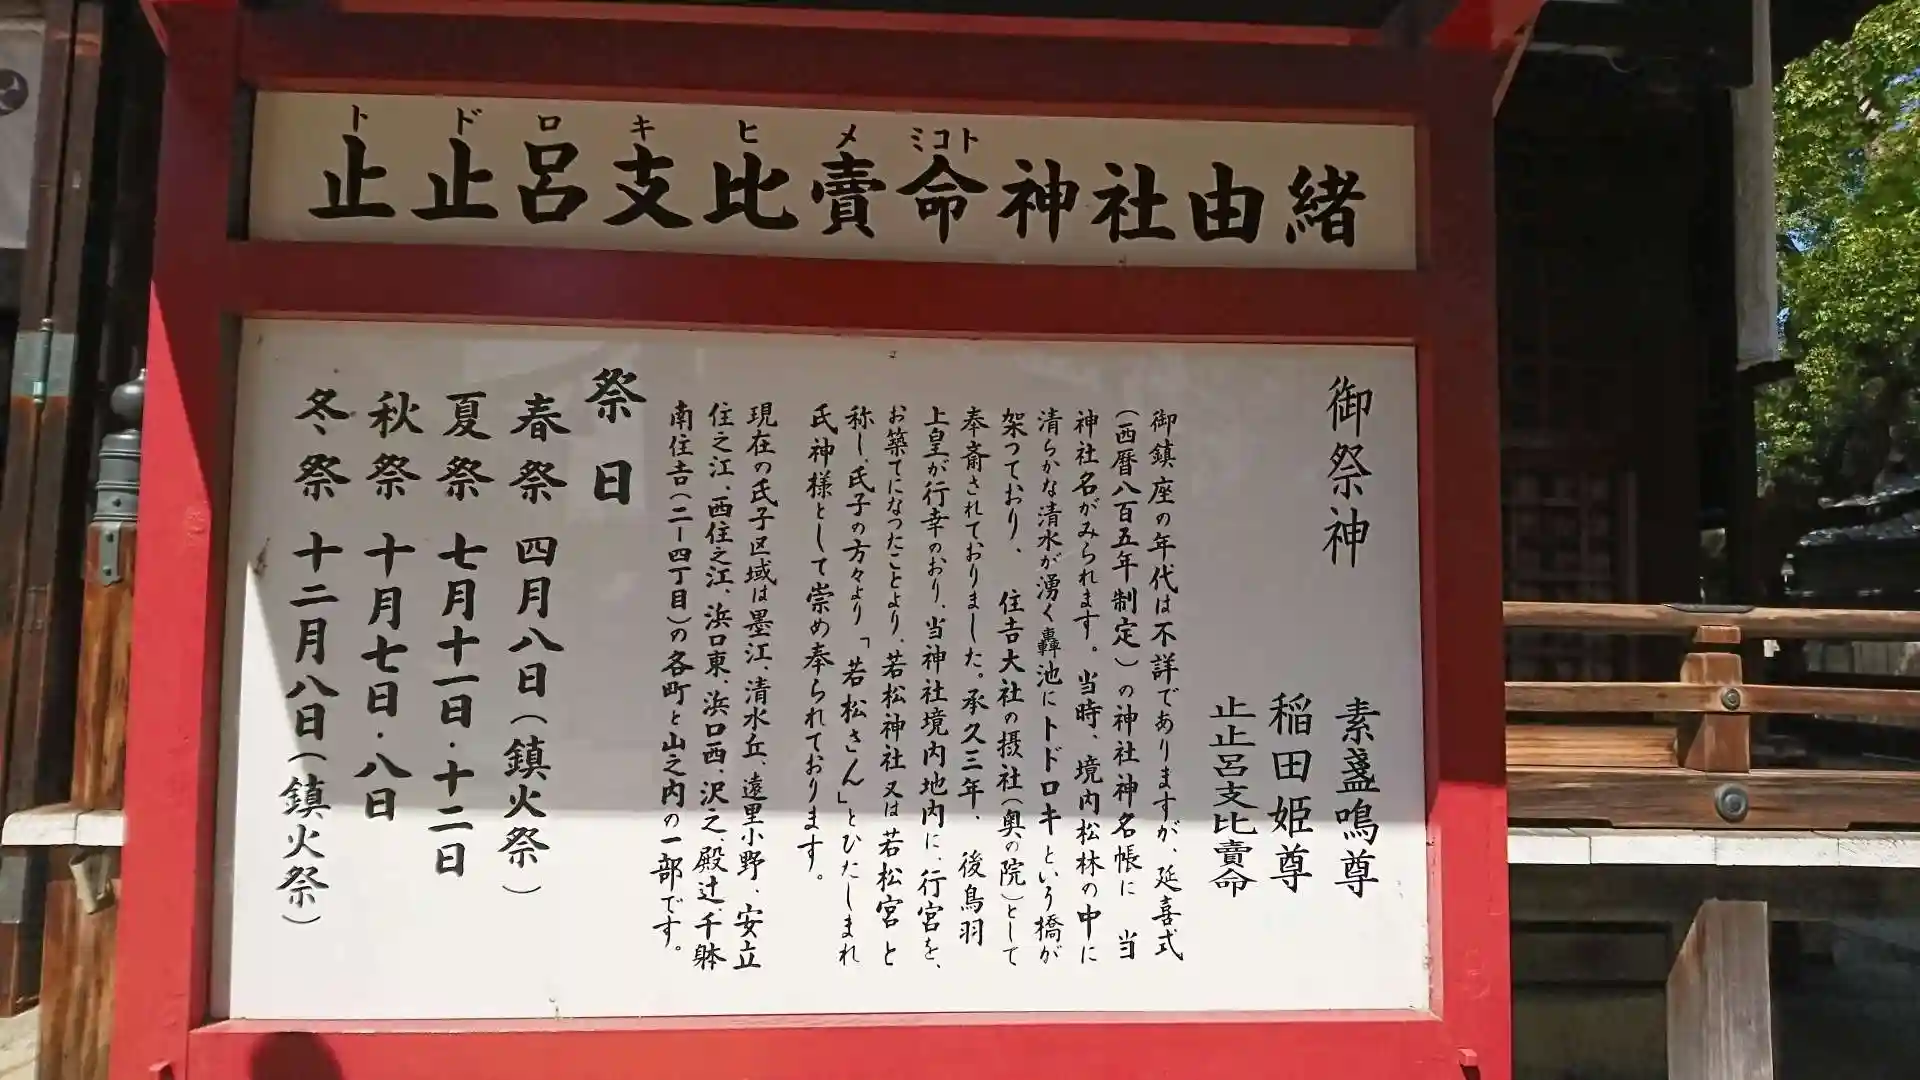 止止呂支比賣命神社由緒
トドロキヒメミコト
御祭神
素盞鳴尊
稲田姫尊
止止呂支比賣命
御鎮座の年代は不詳でありますが、延喜式
(西暦八百五年制定)の神社神名帳に 当
神社名がみられます。当時、境内松林の中に
清らかな清水が湧く轟池にトドロキという橋が
架つており、 住吉大社の摂社(奥の院)として
奉斎されておりました。承久三年、 後鳥羽
上皇が行幸のおり、当神社境内地内に、行宮を、
お築てになつたことより、若松神社又は若松宮と
称し、氏子の方々より「若松さん」とひたしまれ
氏神様として崇め奉られております。
現在の氏子区域は墨江、清水丘、遠里小野、安立
住之江、西住之江、浜口東、浜口西、沢之、殿辻、千躰
南住吉(二ー四丁目)の各町と山之内の一部です。
祭日
春祭 四月八日(鎮火祭)
夏祭 七月十一日・十二日
秋祭 十月七日・八日
冬祭 十二月八日(鎮火祭)